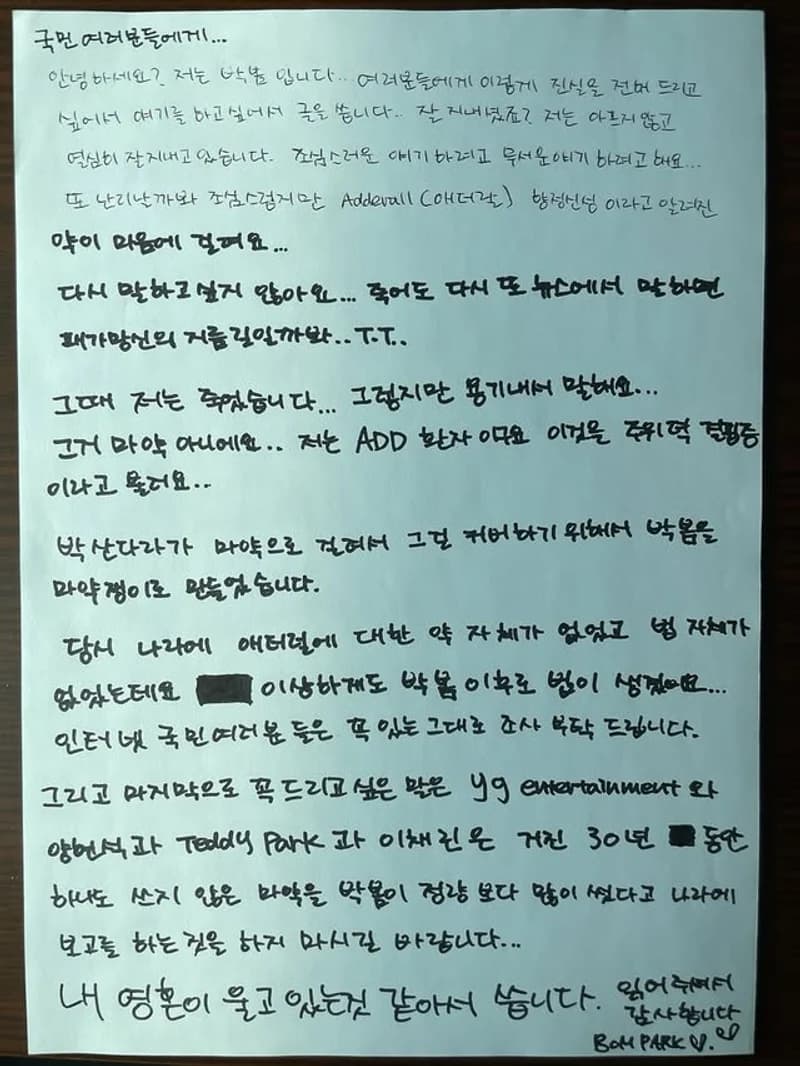 국민 여러분들에게...
안녕하세요? 저는 박봄 입니다... 여러분들에게 이렇게 진실을 전해 드리고
싶어서 얘기를 하고싶어서 글을 씁니다.. 잘 지내셨죠? 저는 아프지 않고
열심히 잘지내고 있습니다. 조심스러운 얘기 하려고 무서운얘기 하려고 해요...
또 난리날까봐 조심스럽지만 Adderall (애더럴) 향정신성 이라고 알려진
약이 마음에 걸려요...
다시 말하고 싶지 않아요... 죽어도 다시 또 뉴스에서 말하면
패가망신의 지름길일까봐.. T.T..
그때 저는 죽었습니다... 그렇지만 용기내서 말해요...
그거 마약 아니에요.. 저는 ADD 환자 이구요 이것을 주위력 결핍증
이라고 불러요..
박산다라가 마약으로 걸려서 그걸 커버하기 위해서 박봄을
마약쟁이로 만들었습니다.
당시 나라에 애터럴에 대한 약 자체가 없었고 법 자체가
없었는데요 이상하게도 박봄 이후로 법이 생겼어요...
인터넷 국민여러분 들은 꼭 있는그대로 조사 부탁 드립니다.
그리고 마지막으로 꼭 드리고 싶은 말은 yg entertainment 와
양현석과 Teddy Park 과 이채린은 거진 30년 동안
하나도 쓰지 않은 마약을 박봄이 정량 보다 많이 썼다고 나라에
보고를 하는것을 하지 마시길 바랍니다...
내 영혼이 울고 있는것 같아서 씁니다. 읽어주셔서
감사합니다
BOM PARK ♡. ♡